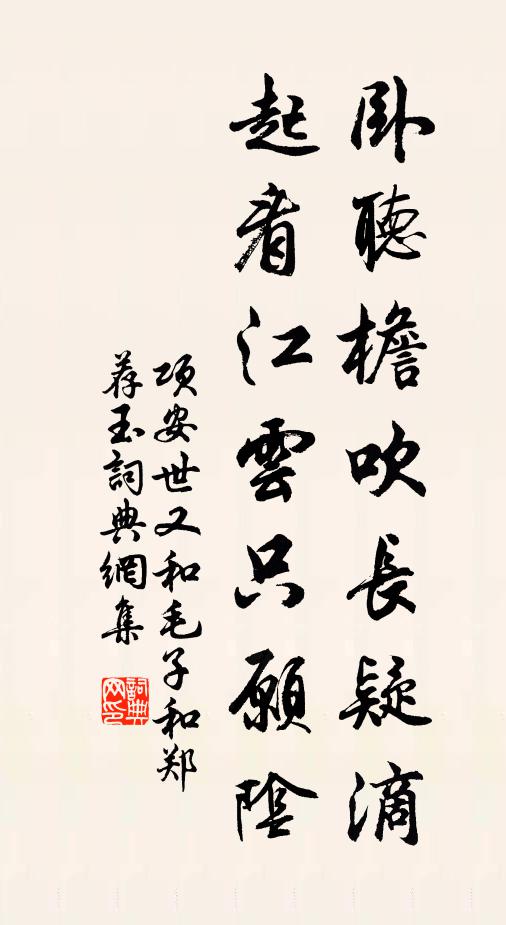 卧聽檐吹長疑滴
起看江雲只願陰
項安世又和毛子和郑
荐玉詞典網集
詞典网印